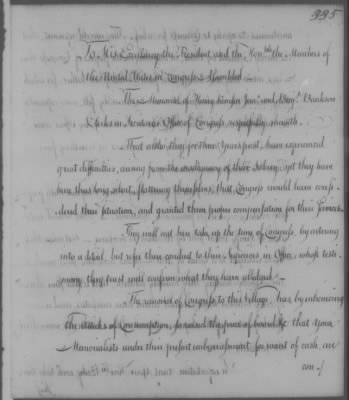 335
To His Excellency the President and the Hon.ble the Members of
the United States in Congress Assembled
The Memorial of Henry Remsen Jun.r and Benj.n Bankson
Clerks in Secretary's Office of Congress, respectfully sheweth.
That altho they for three Years past, have experienced
great difficulties, arising from the inadequacy of their Salary, yet they have
been, thus long silent, flattering themselves, that Congress would have consi-
dered their situation, and granted them proper compensation for their Services.
They will not here take up the time of Congress, by entering
into a detail, but refer their conduct to their Superiors in Office, whose testi-
mony, they trust will confirm what they have alledged.
The removal of Congress to this Village, has, by enhancing
the articles of Consumption, so raised the price of boarding that Your
Memorialists under their present embarrassment for want of cash, are
con-/